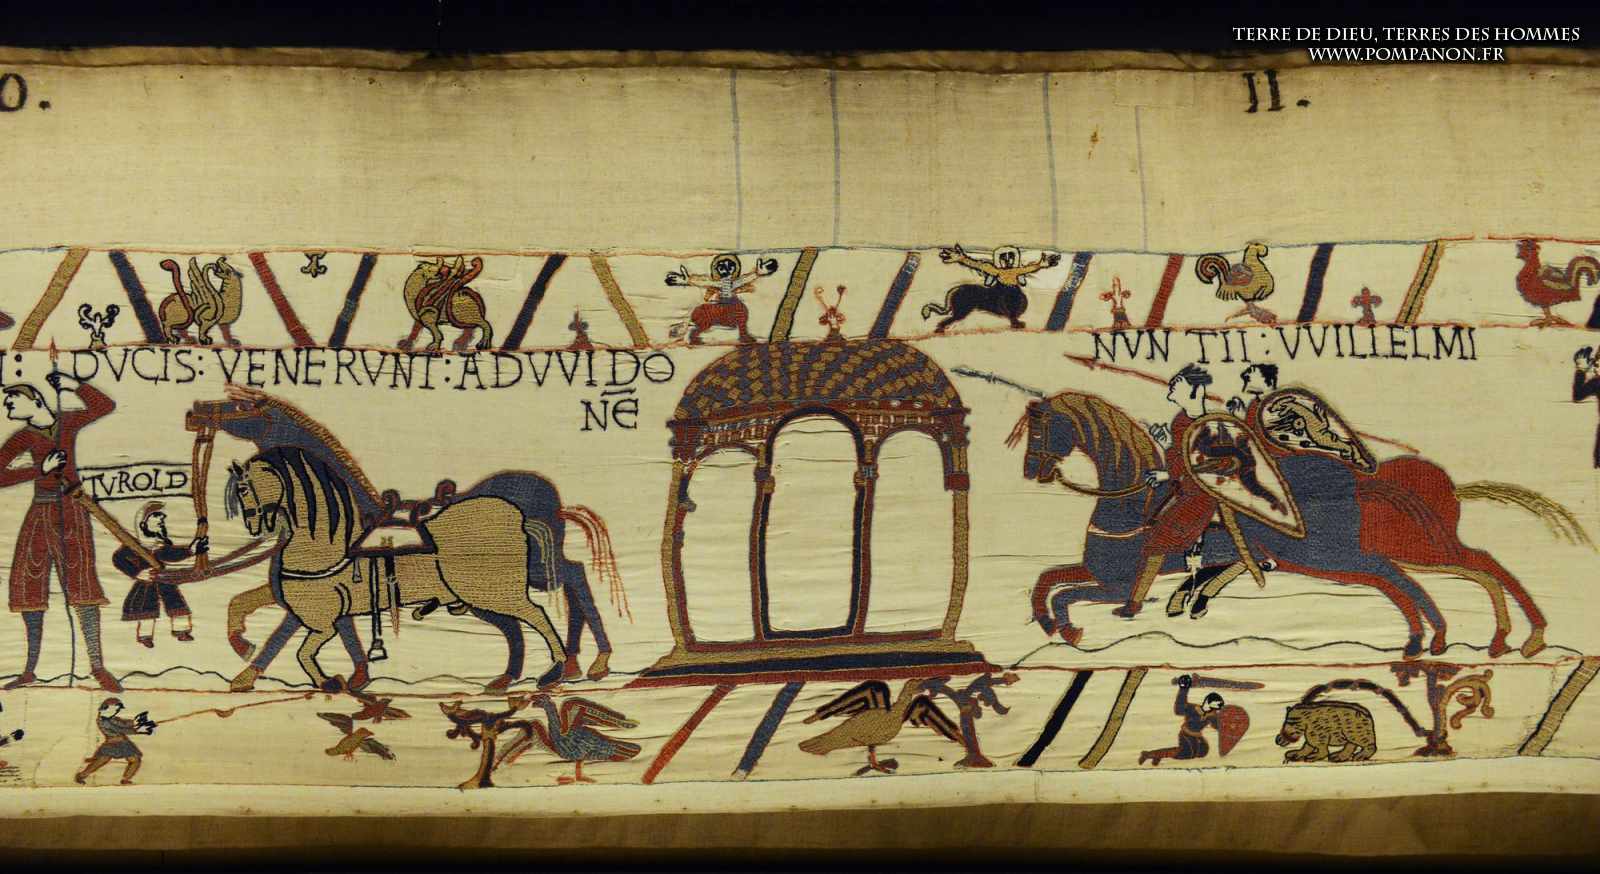 TERRE DE DIEU, TERRES DES HOMMES
WWW.POMPANON.FR
0.
II.
I: DVCIS: VENERVNT: AD VVIDO
NĒ
TVROLD
NVNTII: VVILLELMI